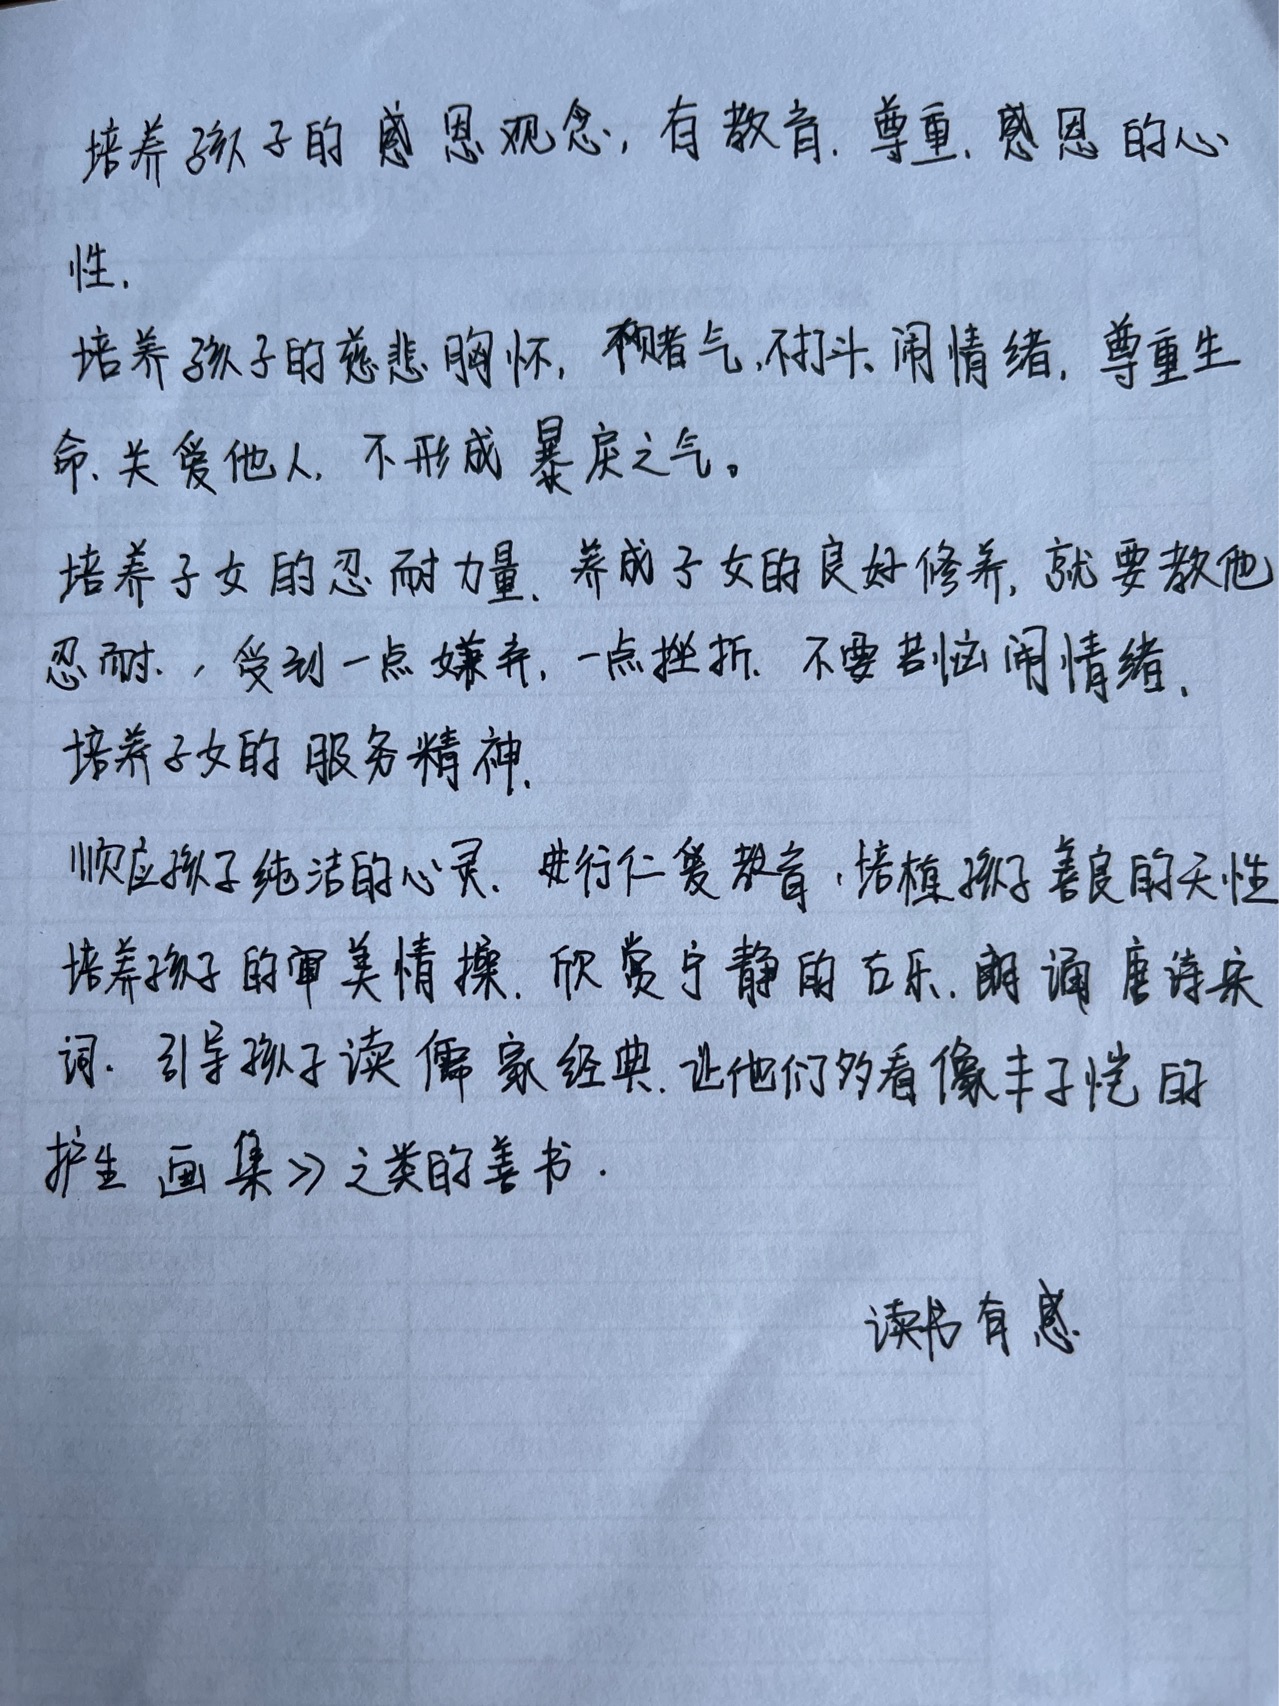 培养孩子的感恩观念,有教育.尊重.感恩的心
性.
培养孩子的慈悲胸怀,不赌气,不打斗、闹情绪,尊重生
命.关爱他人,不形成暴戾之气。
培养子女的忍耐力量.养成子女的良好修养,就要教他
忍耐.,受到一点嫌弃,一点挫折.不要苦恼闹情绪.
培养子女的服务精神.
顺应孩子纯洁的心灵.进行仁爱教育,培植孩子善良的天性
培养孩子的审美情操.欣赏宁静的古乐.朗诵唐诗宋
词.引导孩子读儒家经典.让他们多看像丰子恺的
护生画集》之类的善书.
读书有感.